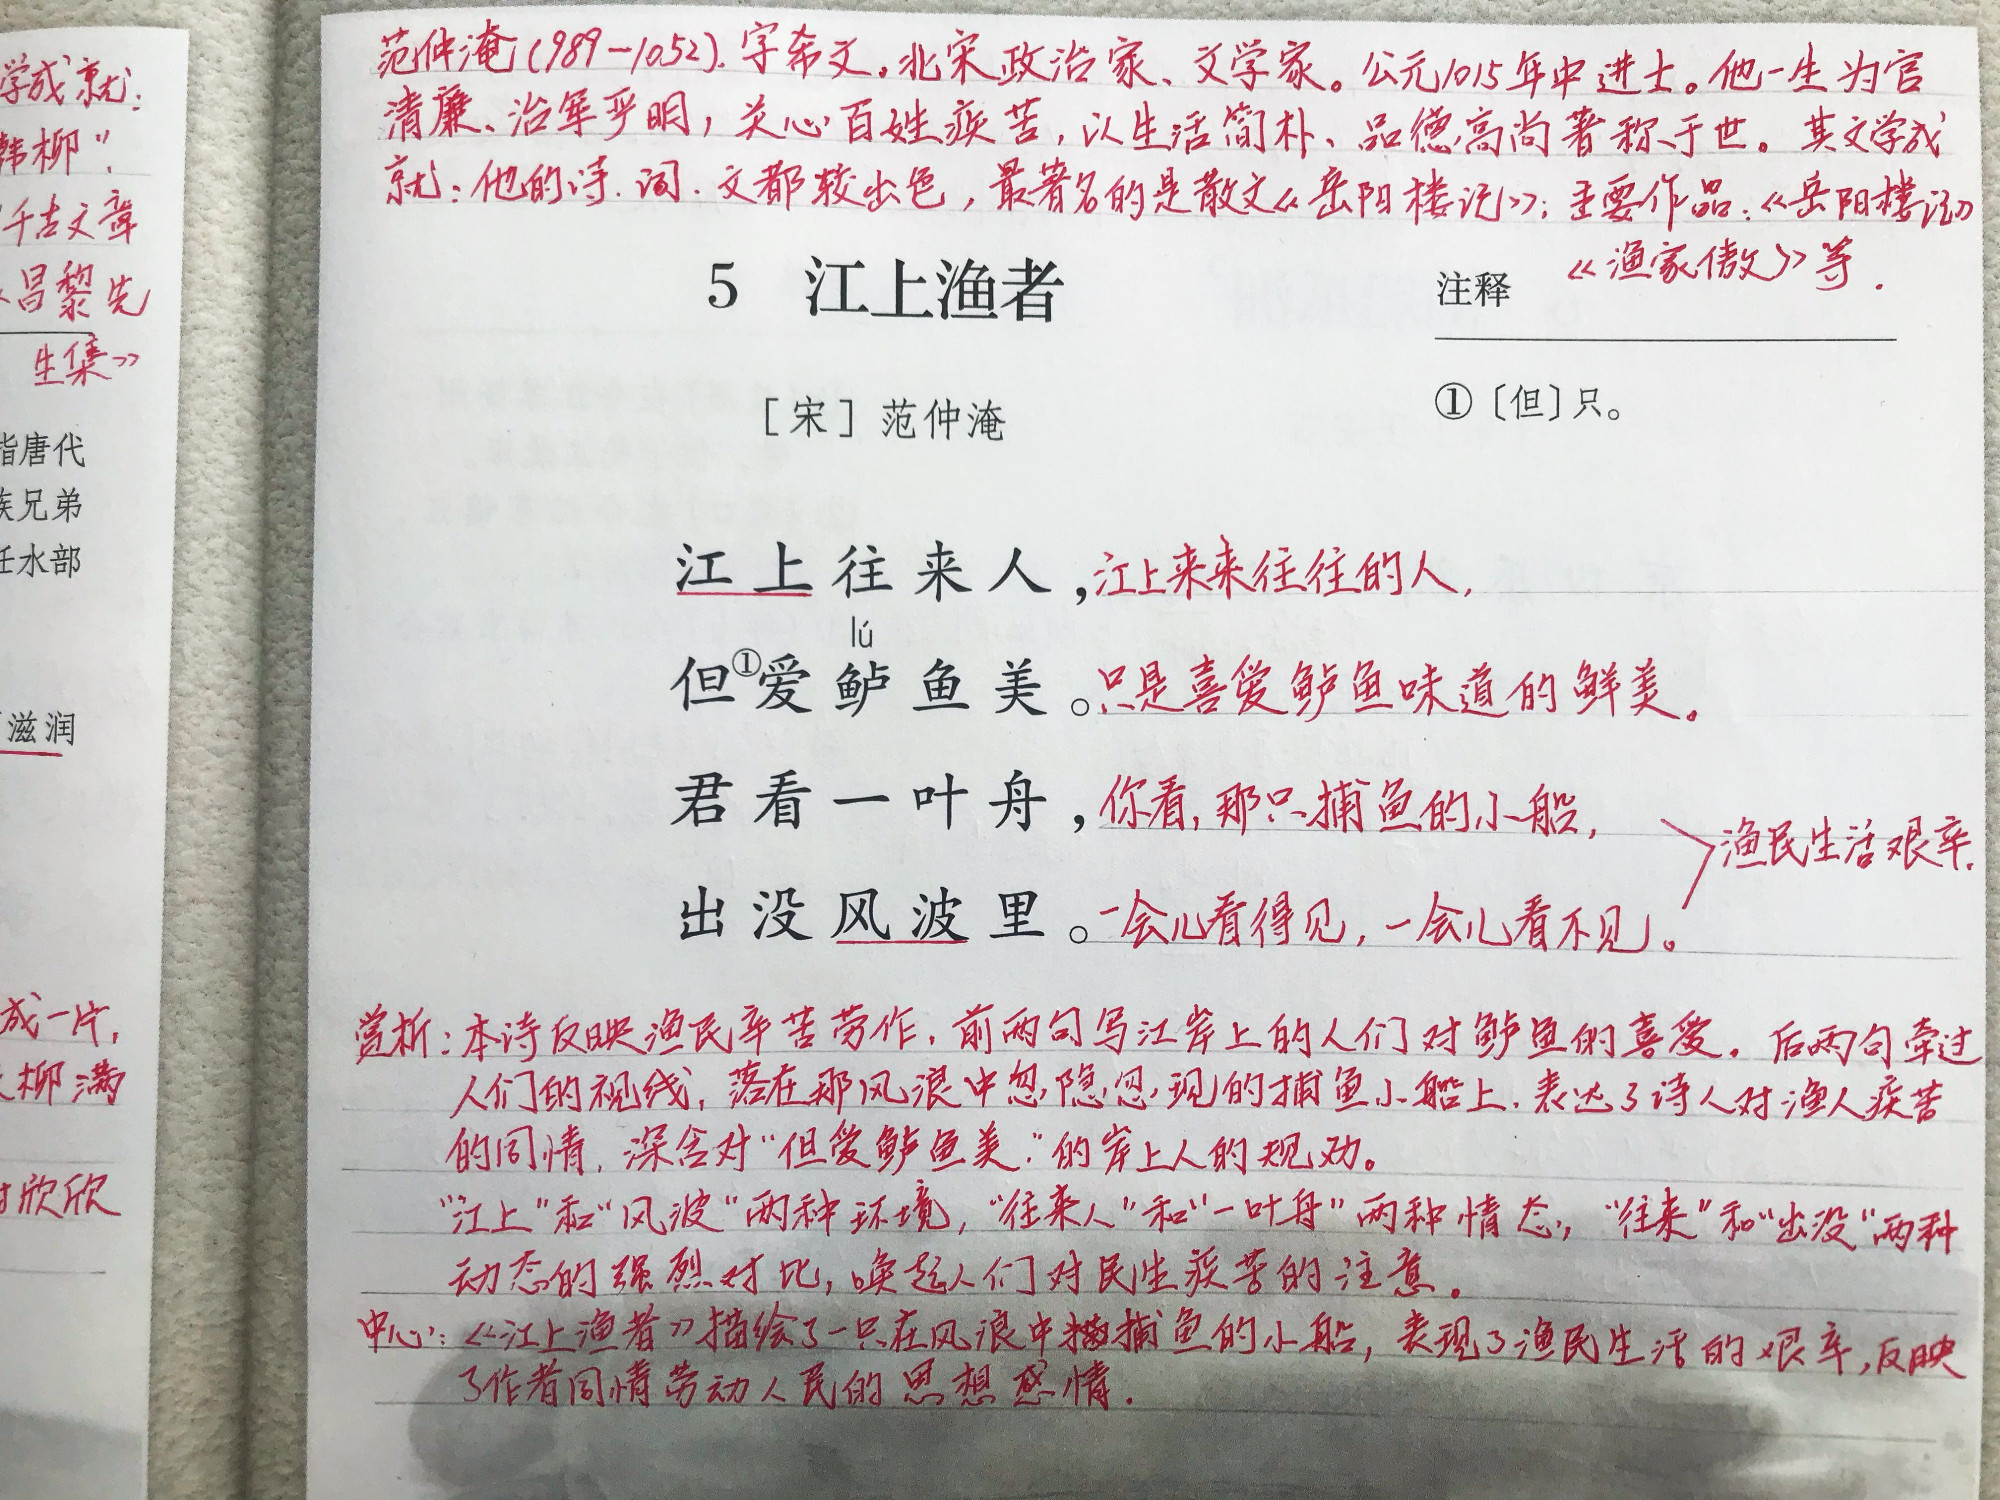 学成就：
韩柳”，
千古文章
昌黎先
生集》
指唐代
族兄弟
任水部
滋润
成一片，
柳满
欣欣
范仲淹(989—1052)．字希文。北宋政治家、文学家。公元1015年中进士。他一生为官
清廉、治军严明，关心百姓疾苦，以生活简朴、品德高尚著称于世。其文学成
就：他的诗．词．文都较出色，最著名的是散文《岳阳楼记》；主要作品：《岳阳楼记》
《渔家傲》等．
5 江上渔者
注释
［宋］范仲淹
①〔但〕只。
江上往来人，江上来来往往的人，
lú
但①爱鲈鱼美。只是喜爱鲈鱼味道的鲜美。
君看一叶舟，你看，那只捕鱼的小船，
渔民生活艰辛．
出没风波里。一会儿看得见，一会儿看不见。
赏析：本诗反映渔民辛苦劳作．前两句写江岸上的人们对鲈鱼的喜爱。后两句牵过
人们的视线，落在那风浪中忽隐忽现的捕鱼小船上．表达了诗人对渔人疾苦
的同情，深含对“但爱鲈鱼美”的岸上人的规劝。
“江上”和“风波”两种环境，“往来人”和“一叶舟”两种情态，“往来”和“出没”两种
动态的强烈对比，唤起人们对民生疾苦的注意。
中心：《江上渔者》描绘了一只在风浪中捕鱼的小船，表现了渔民生活的艰辛，反映
了作者同情劳动人民的思想感情．